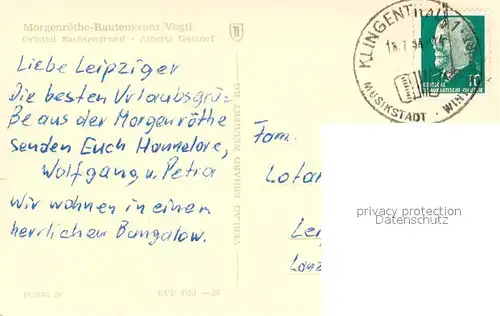 Morgenröthe-Rautenkranz/Vogtl.
Ortsteil Sachsengrund - Alberts Gasthof
Liebe Leipziger
Die besten Urlaubsgrü-
ße aus der Morgenröthe
senden Euch Hannelore,
Wolfgang, u. Petra
Wir wohnen in einem
herrlichen Bungalow.
VERLAG ERHARD NEUBERT KG
EVP: DM -.20
KLINGENTHAL
MUSIKSTADT · WIN
10
DEUTSCHE
DEMOKRATISCHE REPUBLIK
Fam.
Lotar
Lei
privacy protection
Datenschutz